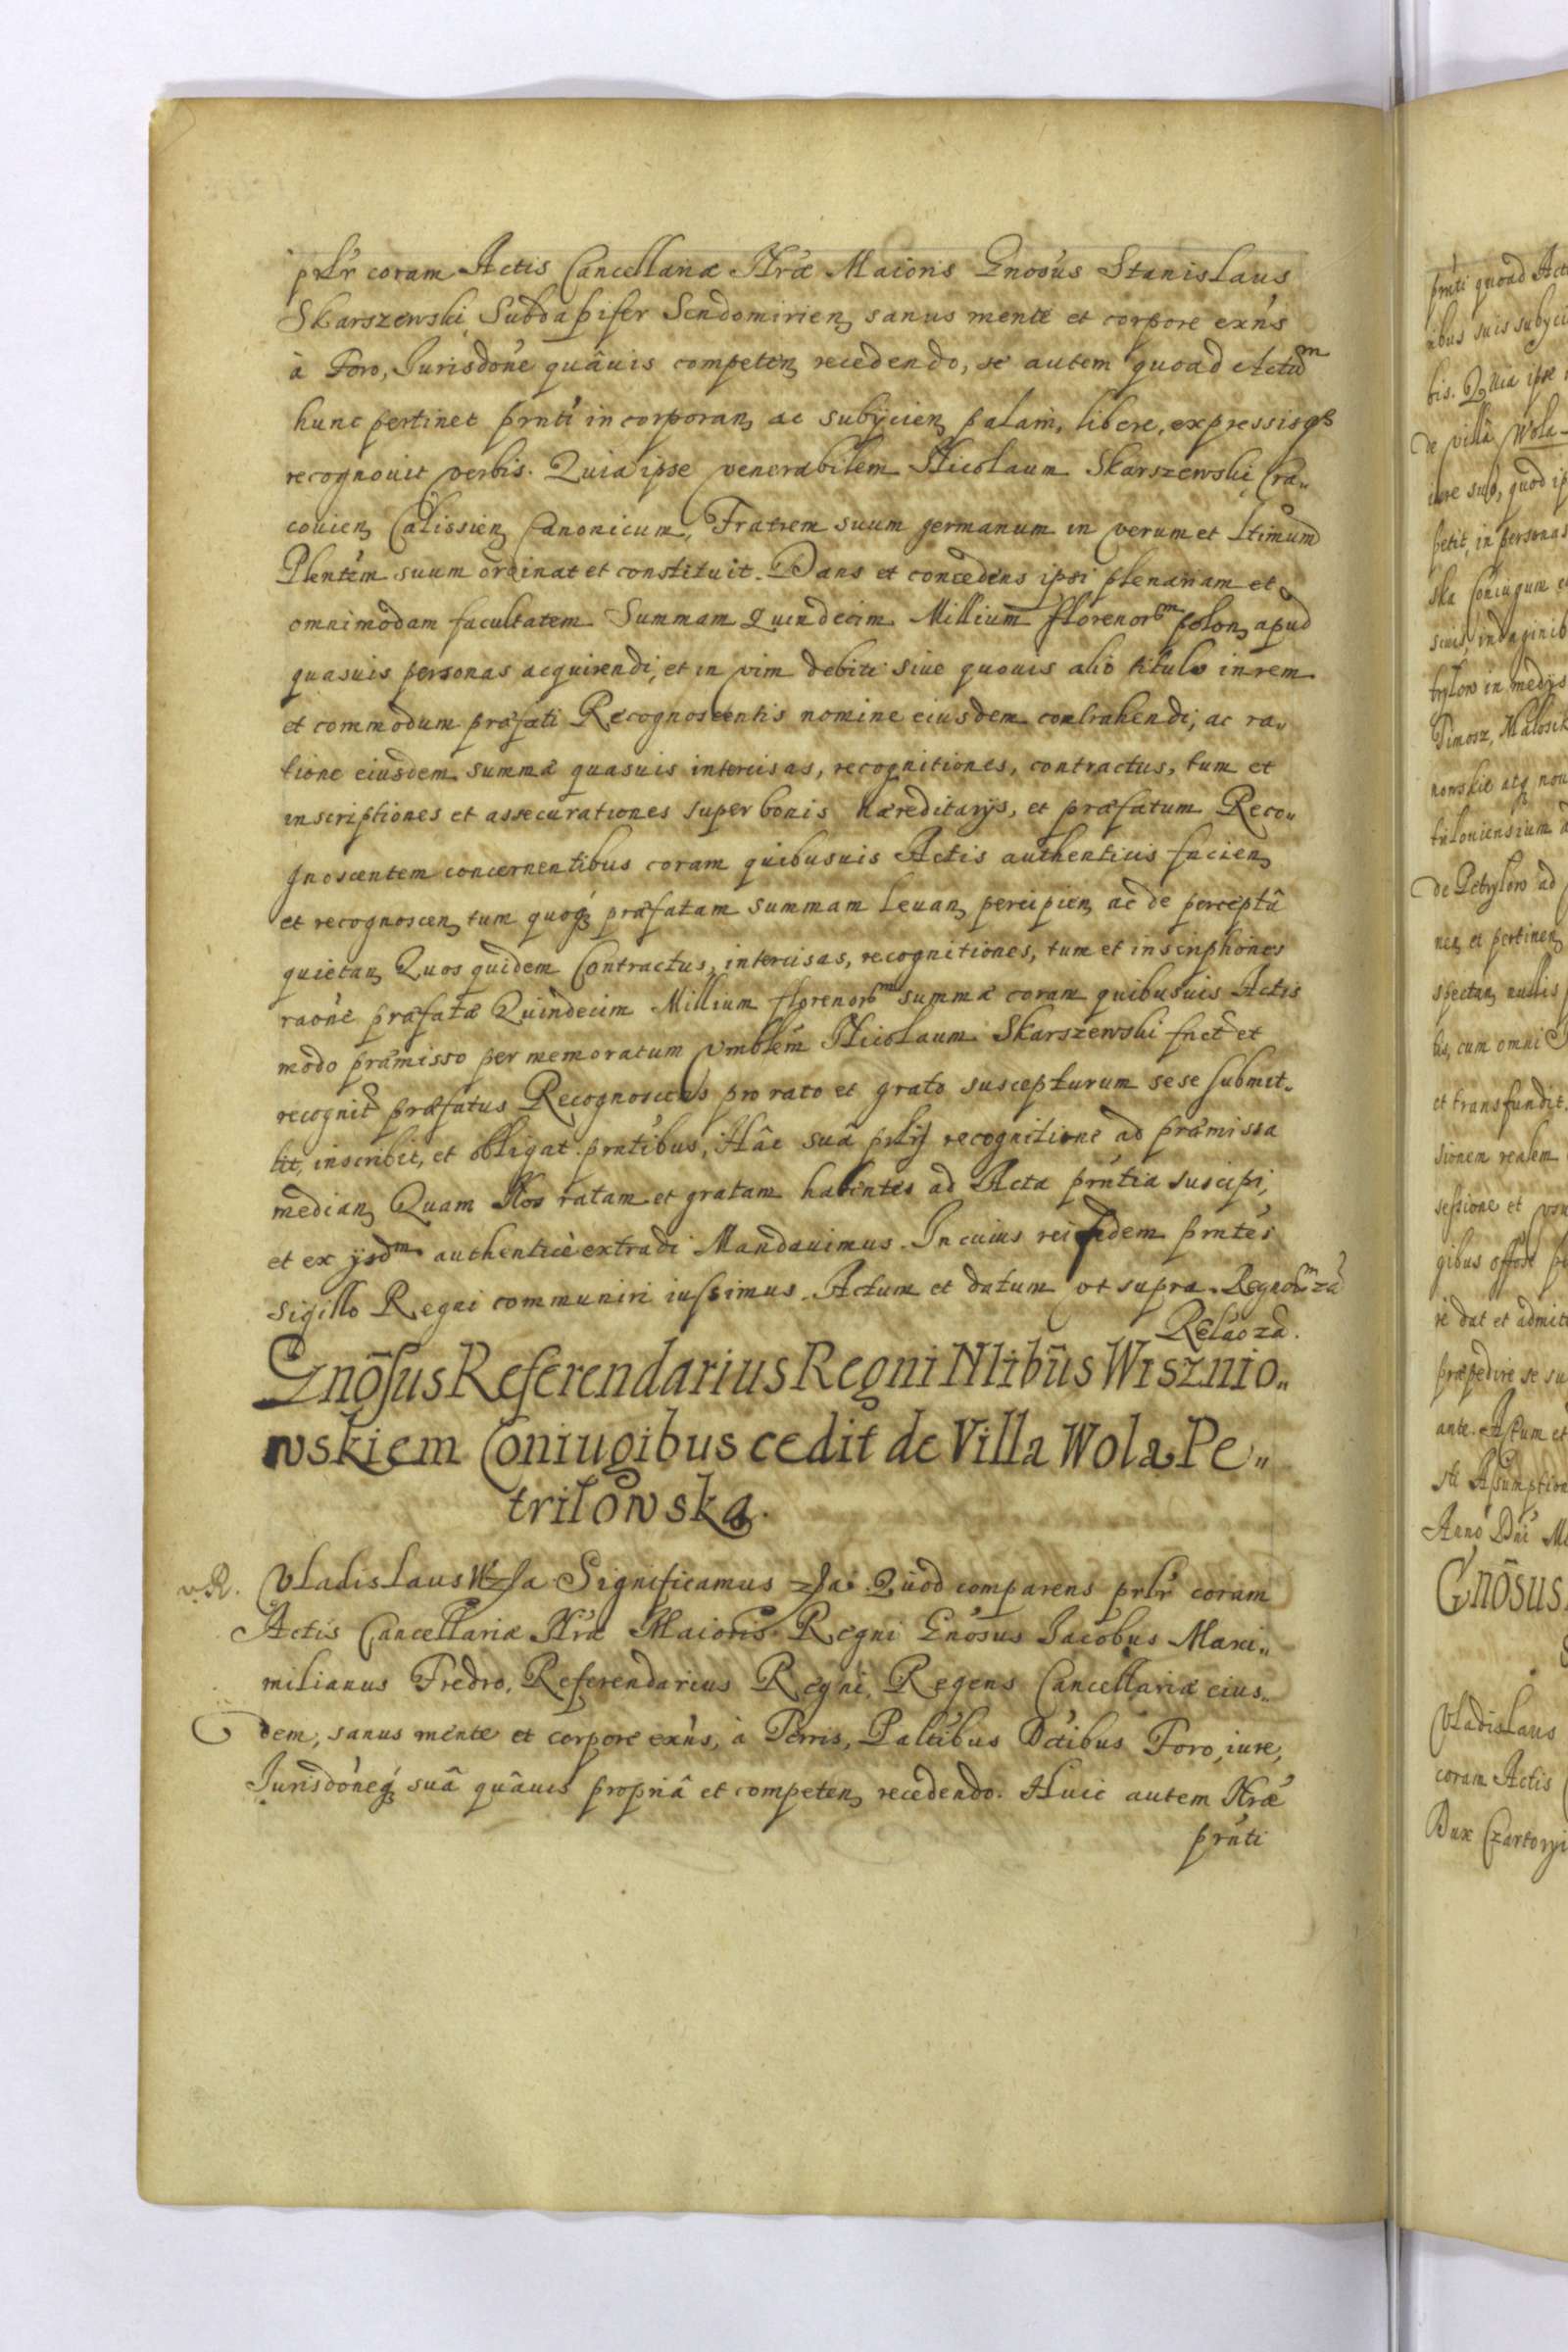 prlr coram Actis Cancellariæ Nræ Maioris Gnosus Stanislaus
Skarszewski Subdapifer Sendomirien, sanus mente et corpore exns
à Foro, Jurisdone quâuis competen, recedendo, se autem quoad Actum
hunc pertinet prnti incorporan, ac subijcien, palam, libere, expressisqs
recognouit verbis. Quia ipse venerabilem Nicolaum Skarszewski Cra„
couien, Calissien, Canonicum, Fratrem suum germanum in verum et Ltimum
Plentem suum ordinat et constituit. Dans et concedens ipsi plenariam et
omnimodam facultatem Summam Quindecim Millium florenorm polon, apud
quasuis personas acquirendi, et in vim debiti siue quouis alio titulo in rem
et commodum præfati Recognoscentis nomine eiusdem contrahendi, ac ra„
tione eiusdem summæ quasuis intercisas, recognitiones, contractus, tum et
inscriptiones et assecurationes super bonis hæreditarijs, et præfatum Reco„
gnoscentem concernentibus coram quibusuis Actis authenticis facien,
et recognoscen, tum quoqȝ præfatam summam leuan, percipien, ac de perceptâ
quietan, Quos quidem Contractus, intercisas, recognitiones, tum et inscriptiones
raone præfatæ Quindecim Millium florenorm summæ coram quibusuis Actis
modo præmisso per memoratum vnblem Nicolaum Skarszewski fact et
recognit præfatus Recognoscens pro rato et grato suscepturum sese submit„
tit, inscribit, et obligat prntibus, Hâc suâ prlij recognitione ad præmissa
median, Quam Nos ratam et gratam habentes ad Acta prntia suscipi,
et ex ijsdm authenticè extradi Mandauimus. In cuius rei fidem prntes
Sigillo Regni communiri iussimus. Actum et datum vt supra.
Relao za.
Gnōsus Referendarius Regni Nlibūs Wisznio„
wskiem Coniugibus cedit de Villa Wola Pe„
trilowska.
v.R. Vladislaus Significamus Quod comparens prlr coram
Actis Cancellariæ Nræ Maioris Regni Gnosus Jacobus Maxi„
milianus Fredro, Referendarius Regni, Regens Cancellariæ eius„
dem, sanus mente et corpore exns, à Terris, Paltibus Dctibus Foro, iure,
Jurisdoneqȝ suâ quâuis propriâ et competen, recedendo. Huic autem Nræ
prnti
prnti quoad Act
ibus suis subijci
bis. Quia ipse
de villâ Wola
iure suo, quod ip
petit, in personas
ska Coniugum e
suis, indaginib
trylow in medijs
Timosz,
nowskie atq non
triloniensium
de Petrylow ad
nen, et pertinen,
spectan, nullis
bis, cum omni
et transfundit,
sionem realem
sessione et vsu
gibus offert
re dat et admit
præpedire se su
ante. Actum et
sti Assumption
Anno Dni
Gnōsus
Vladislaus
coram Actis
Dux Czartoryi